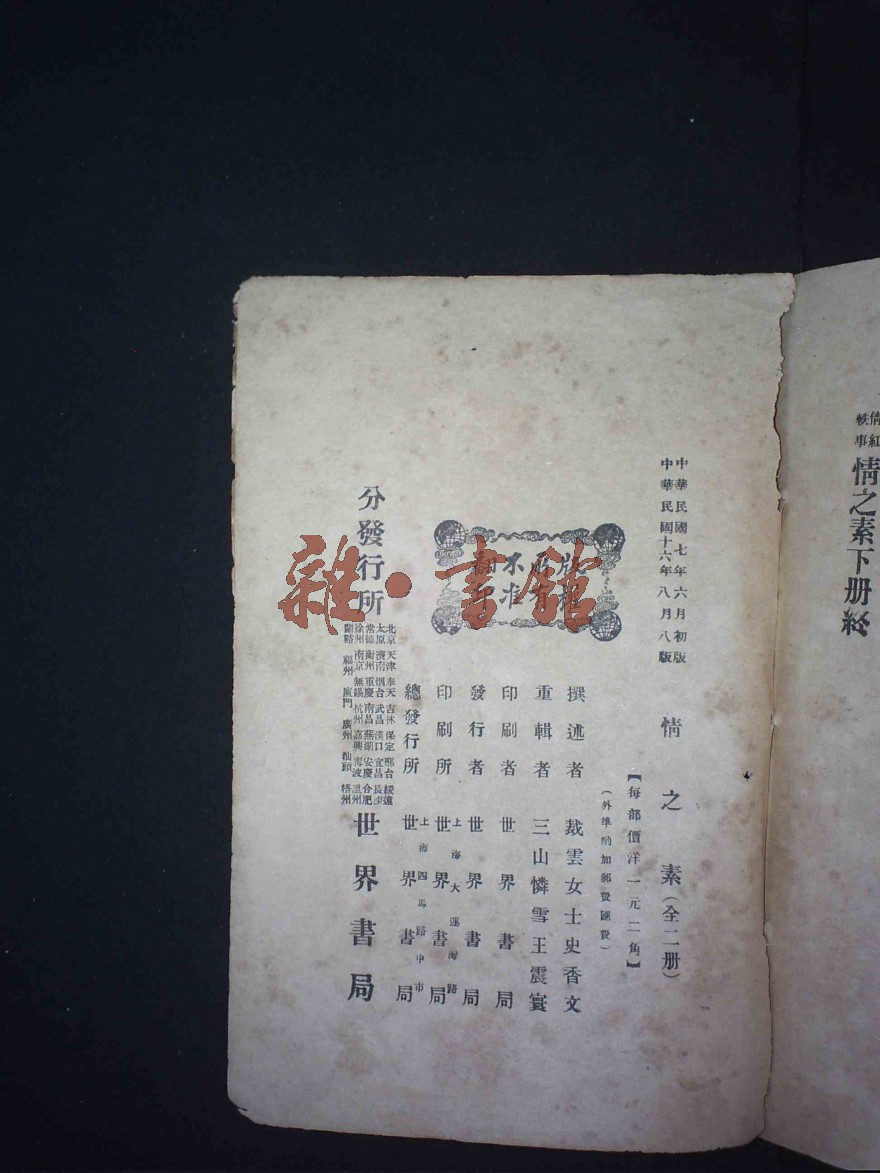 倩紅
軼事
情之素下册終
中華民國七年六月初版
中華民國十六年八月八版
情之素（全二册）
【每部價洋一元二角】
（外埠酌加郵費匯費）
版權
所有
不准
翻印
撰述者 裁雲女士史香文
重輯者 三山憐雪王震寰
印刷者 世界書局
發行者 世界書局
印刷所 上海大連灣路 世界書局
總發行所 上海四馬路中市 世界書局
分發行所
北京 天津 奉天 吉林 保定 邢台 綏遠
太原 濟南 烟台 武昌 漢口 宜昌 長沙
常德 衡州 重慶 南昌 蕪湖 安慶 合肥
徐州 南京 無錫 杭州 嘉興 寗波 溫州
蘭谿 福州 廈門 廣州 汕頭 梧州
世界書局
雜·書館